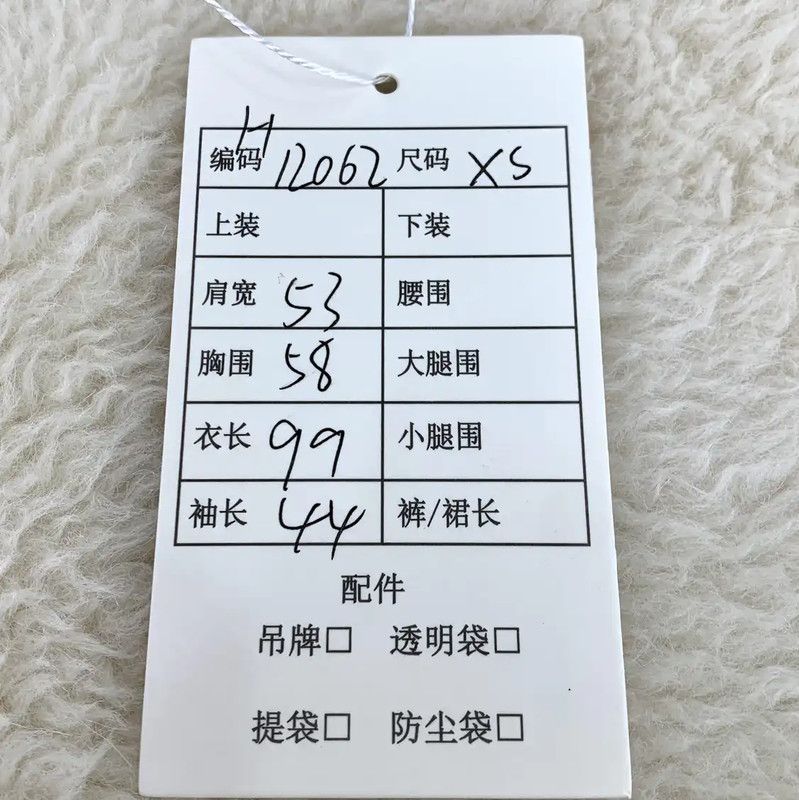 编码 H12062 尺码 XS
上装 下装
肩宽 53 腰围
胸围 58 大腿围
衣长 99 小腿围
袖长 44 裤/裙长
配件
吊牌□ 透明袋□
提袋□ 防尘袋□